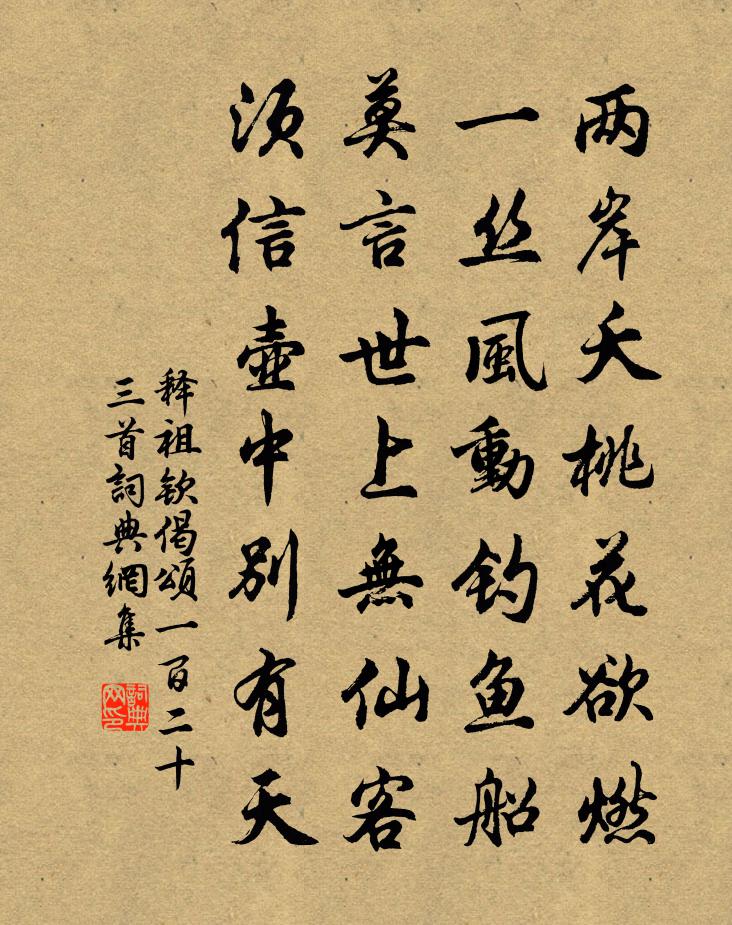 两岸夭桃花欲燃
一丝風動钓鱼船
莫言世上無仙客
须信壺中别有天
释祖钦偈頌一百二十
三首詞典網集
詞典网印